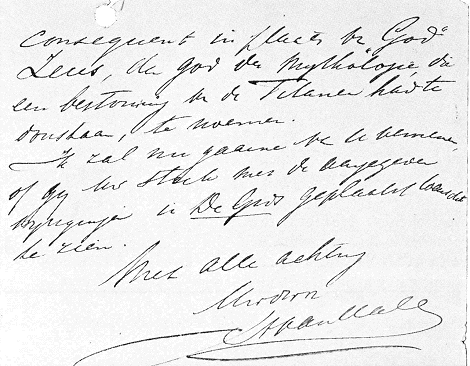 consequent in plaats v. "God"
Zeus, den god der Mythologie, die
een bestorming v. de Titanen had te
doorstaan, te noemen.
Ik zal nu gaarne v. U vernemen,
of gij Uw stuk met de aangegeven
wijzigingen in De Gids geplaatst wenscht
te zien.
Met alle achting
Uwdwn
JNvanHall